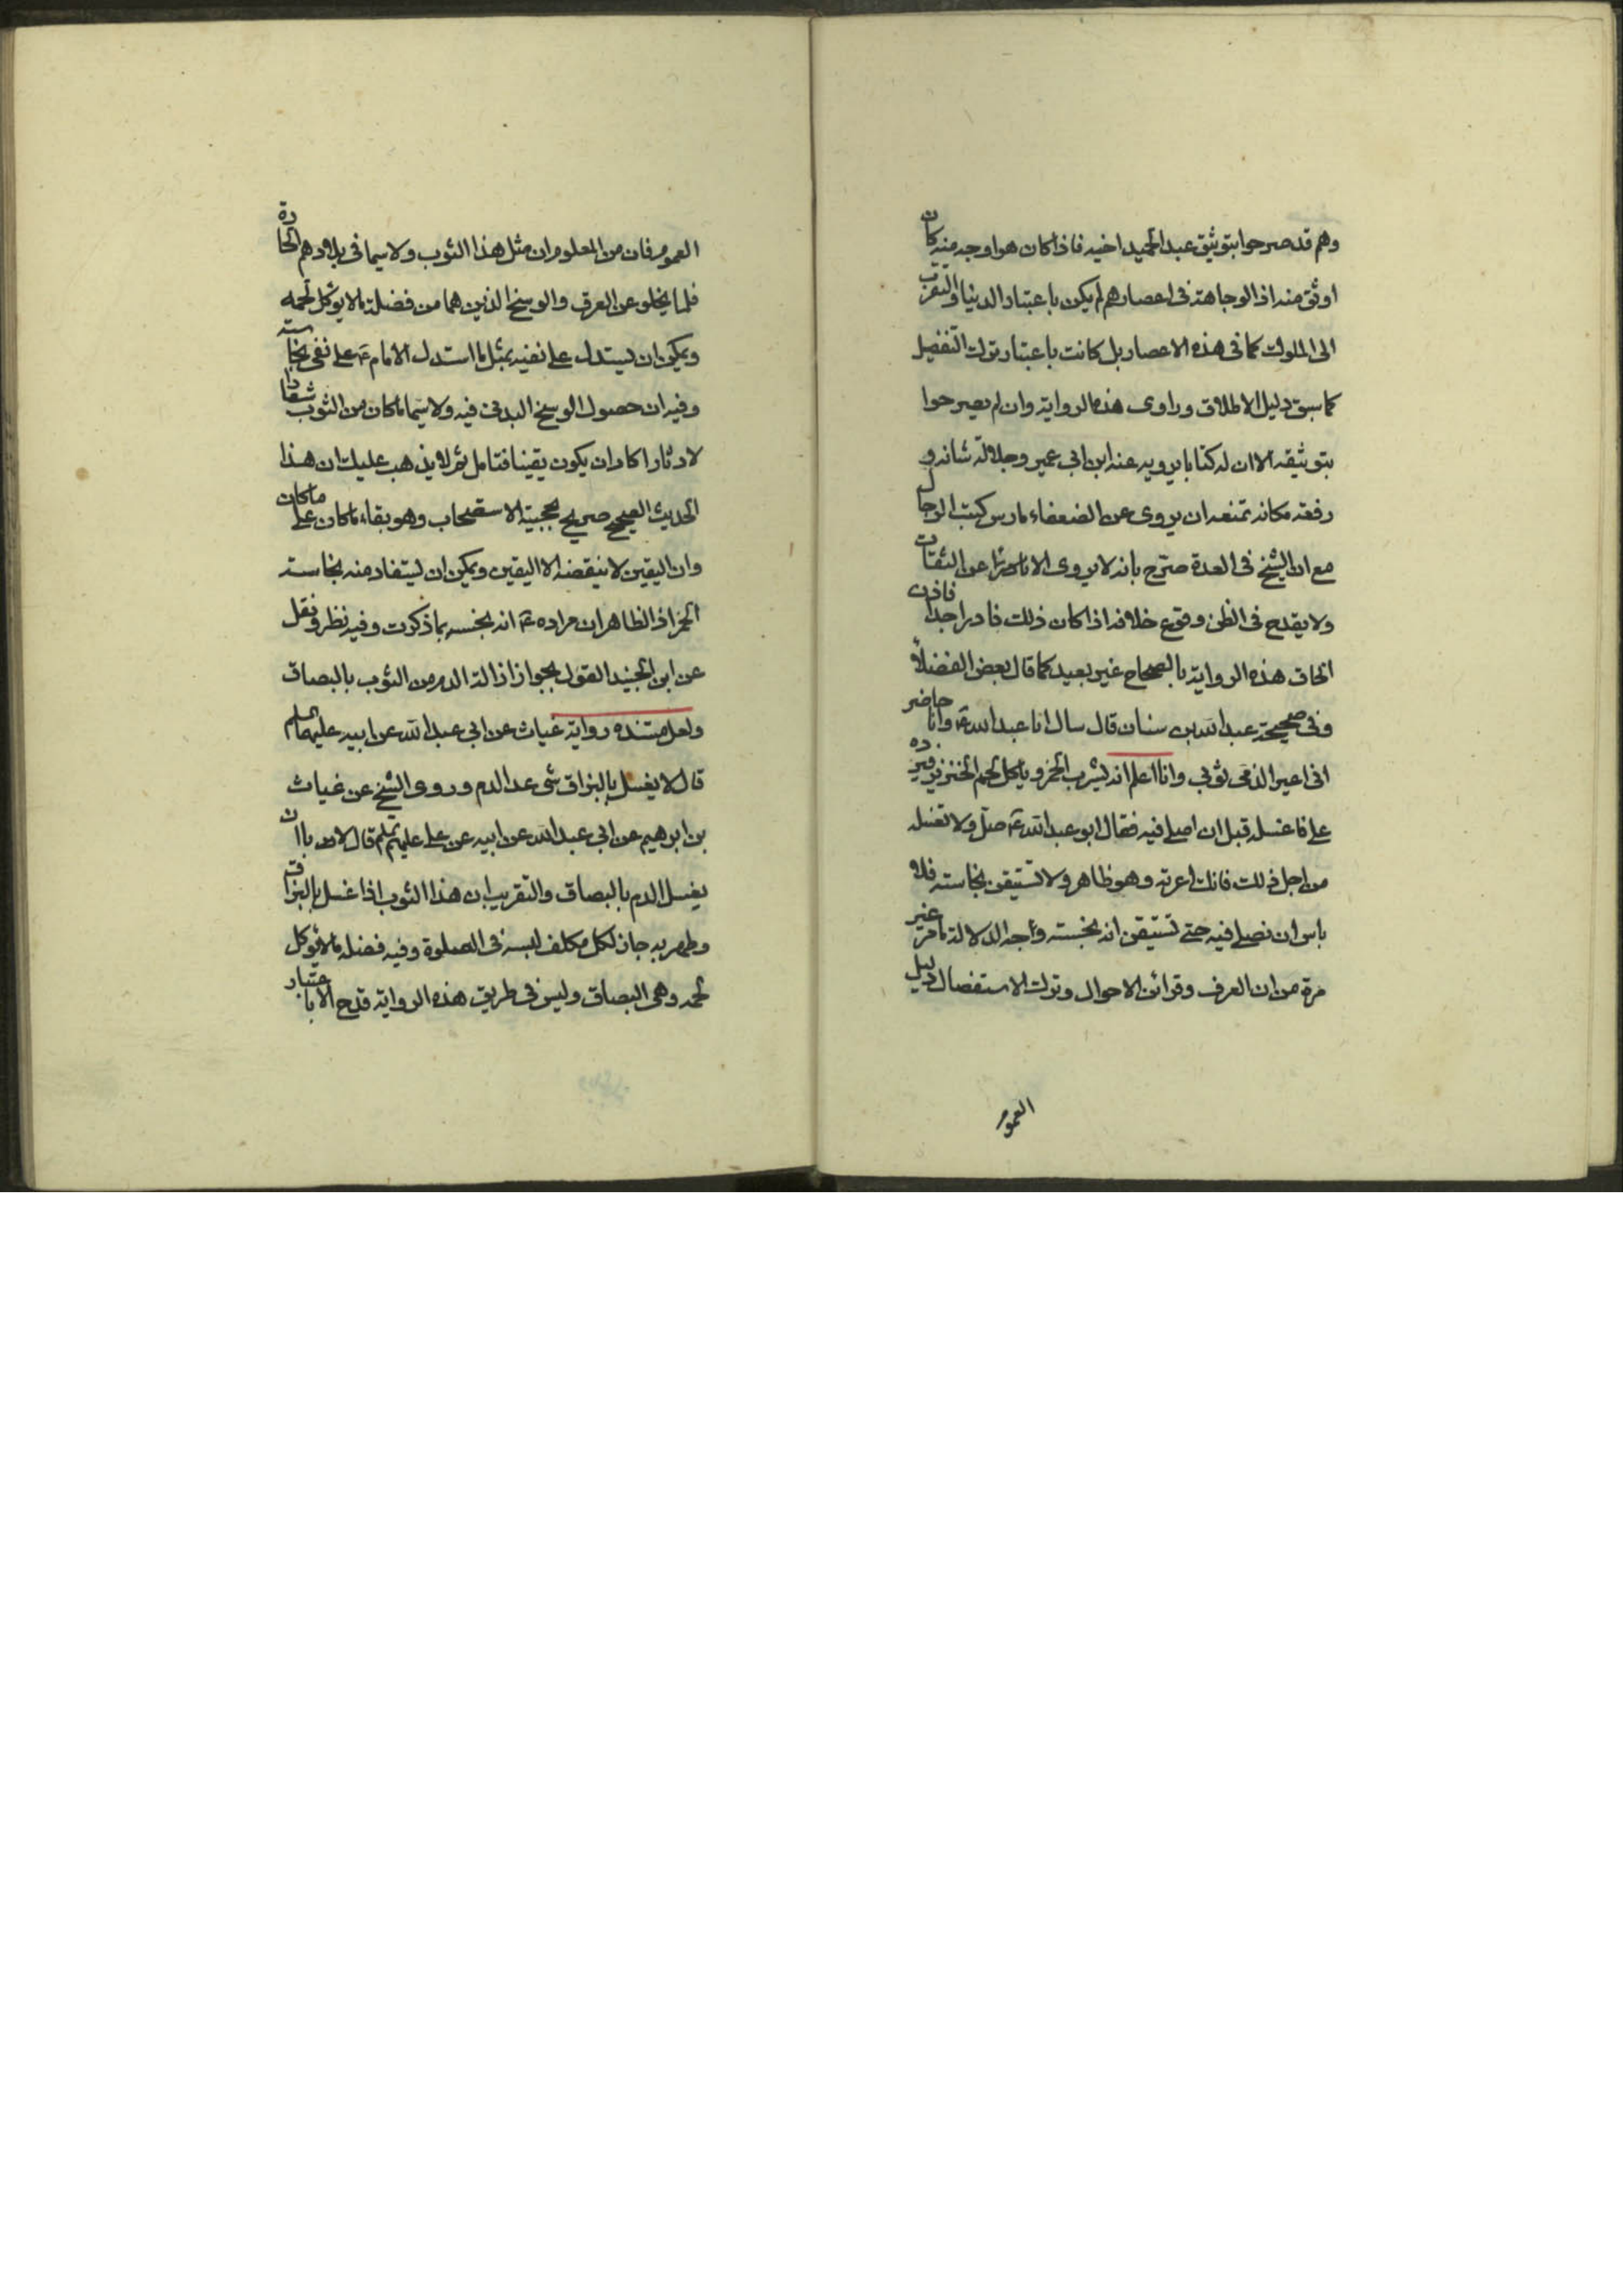 وهم قد صرحوا بتوثيق عبد الحميد اخيه فاذا كان هو اوجه منه كان
اوثق منه اذ الوجاهة فى اعصارهم لم يكن باعتبار الدنيا والتقرب
الى الملوك كما فى هذه الاعصار بل كانت باعتبار ترك التفضيل
كما سبق دليل الاطلاق وراوى هذه الرواية وان لم يصرحوا
بتوثيقه الا ان له كتابا يرويه عنه ابن ابى عمير وجلالة شانه و
رفعة مكانه تمنعه ان يروى عن الضعفاء مارس كتب الرجال
مع ان الشيخ فى العدة صرح بانه لا يروى الا عن الثقات
ولا يقدح فى الظن وقوع خلافه اذا كان ذلك نادرا جدا فاذن
الحاق هذه الرواية بالصحاح غير بعيد كما قال بعض الفضلاء
وفى صحيحة عبد الله بن سنان قال سال ابا عبد الله ع وانا حاضر
انى اعير الذمى ثوبى وانا اعلم انه يشرب الخمر وياكل لحم الخنزير فيرده
على فاغسله قبل ان اصلى فيه فقال ابو عبد الله ع صل ولا تغسله
من اجل ذلك فانك اعرته وهو ظاهر ولا تستيقن نجاسته فلا
باس ان تصلى فيه حتى تستيقن انه نجسته وجه الدلالة ما مر غير
مرة من ان العرف وقرائن الاحوال وترك الاستفصال دليل
العموم
العموم فان من المعلوم ان مثل هذا الثوب ولا سيما فى بلادهم الحارة
قلما يخلو عن العرق والوسخ الذين هما من فضلة ما لا يوكل لحمه
ويمكن ان يستدل على نفيه بمثل ما استدل الامام ع على نفى نجاسته
وفيه ان حصول الوسخ البدنى فيه ولا سيما ما كان من الثوب شعارا
لا دثارا كاد ان يكون يقينا فتامل ثم لا يذهب عليك ان هذا
الحديث الصحيح صريح بحجية الاستصحاب وهو بقاء ما كان على ما كان
وان اليقين لا ينقضه الا اليقين ويمكن ان يستفاد منه نجاسته
الخمر اذ الظاهر ان مراده ع انه نجسه بما ذكرت وفيه نظر ونقل
عن ابن الجنيد القول بجواز ازالة الدم من الثوب بالبصاق
ولعل مستنده رواية غياث عن ابى عبد الله عن ابيه عليهما السلم
قال لا يغسل بالبزاق شى عد الدم وروى الشيخ عن غياث
بن ابرهيم عن ابى عبد الله عن ابيه عن على عليهم السلم قال لا باس ان
يغسل الدم بالبصاق والتقريب ان هذا الثوب اذا غسل بالبزاق
وطهر به جاز لكل مكلف لبسه فى الصلوة وفيه فضلة ما لا يوكل
لحمه وهى البصاق وليس فى طريق هذه الرواية قدح الا باعتبار